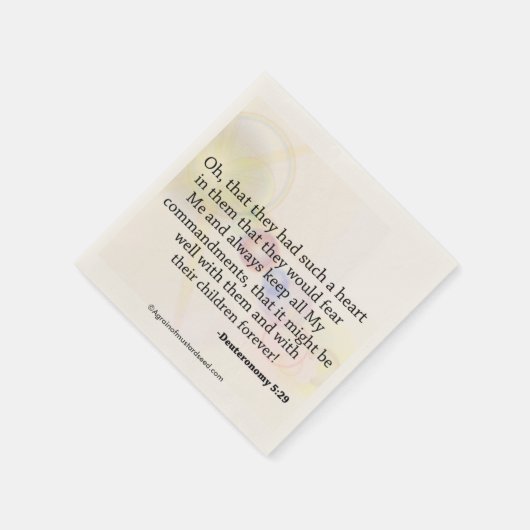 Oh, that they had such a heart
in them that they would fear
Me and always keep all My
commandments, that it might be
well with them and with
their children forever!
-Deuteronomy 5:29
©Agrainofmustardseed.com